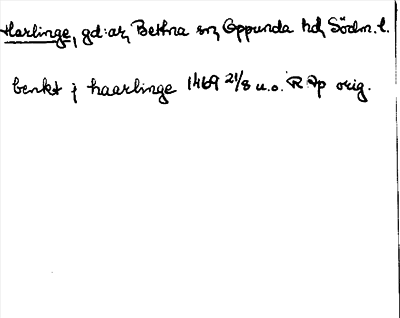 Harlinge, gd:ar, Bettna sn, Oppunda hd, Södm. l.
benkt j haarlinge 1469 21/8 u.o. R Ap orig.